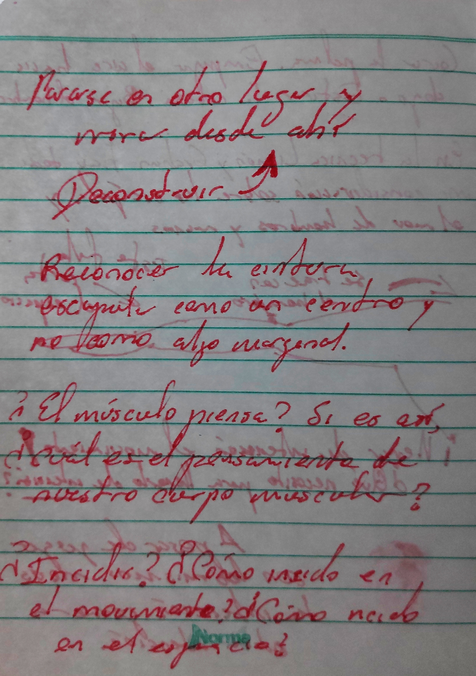 Pararse en otro lugar y
mirar desde ahí
Deconstruir
Reconocer la cintura
escapular como un centro y
no como algo marginal.
¿El músculo piensa? Si es así,
¿Cuál es el pensamiento de
nuestro cuerpo muscular?
¿Incidir? ¿Cómo incido en
el movimiento? ¿Cómo incido
en el espacio?
Norma